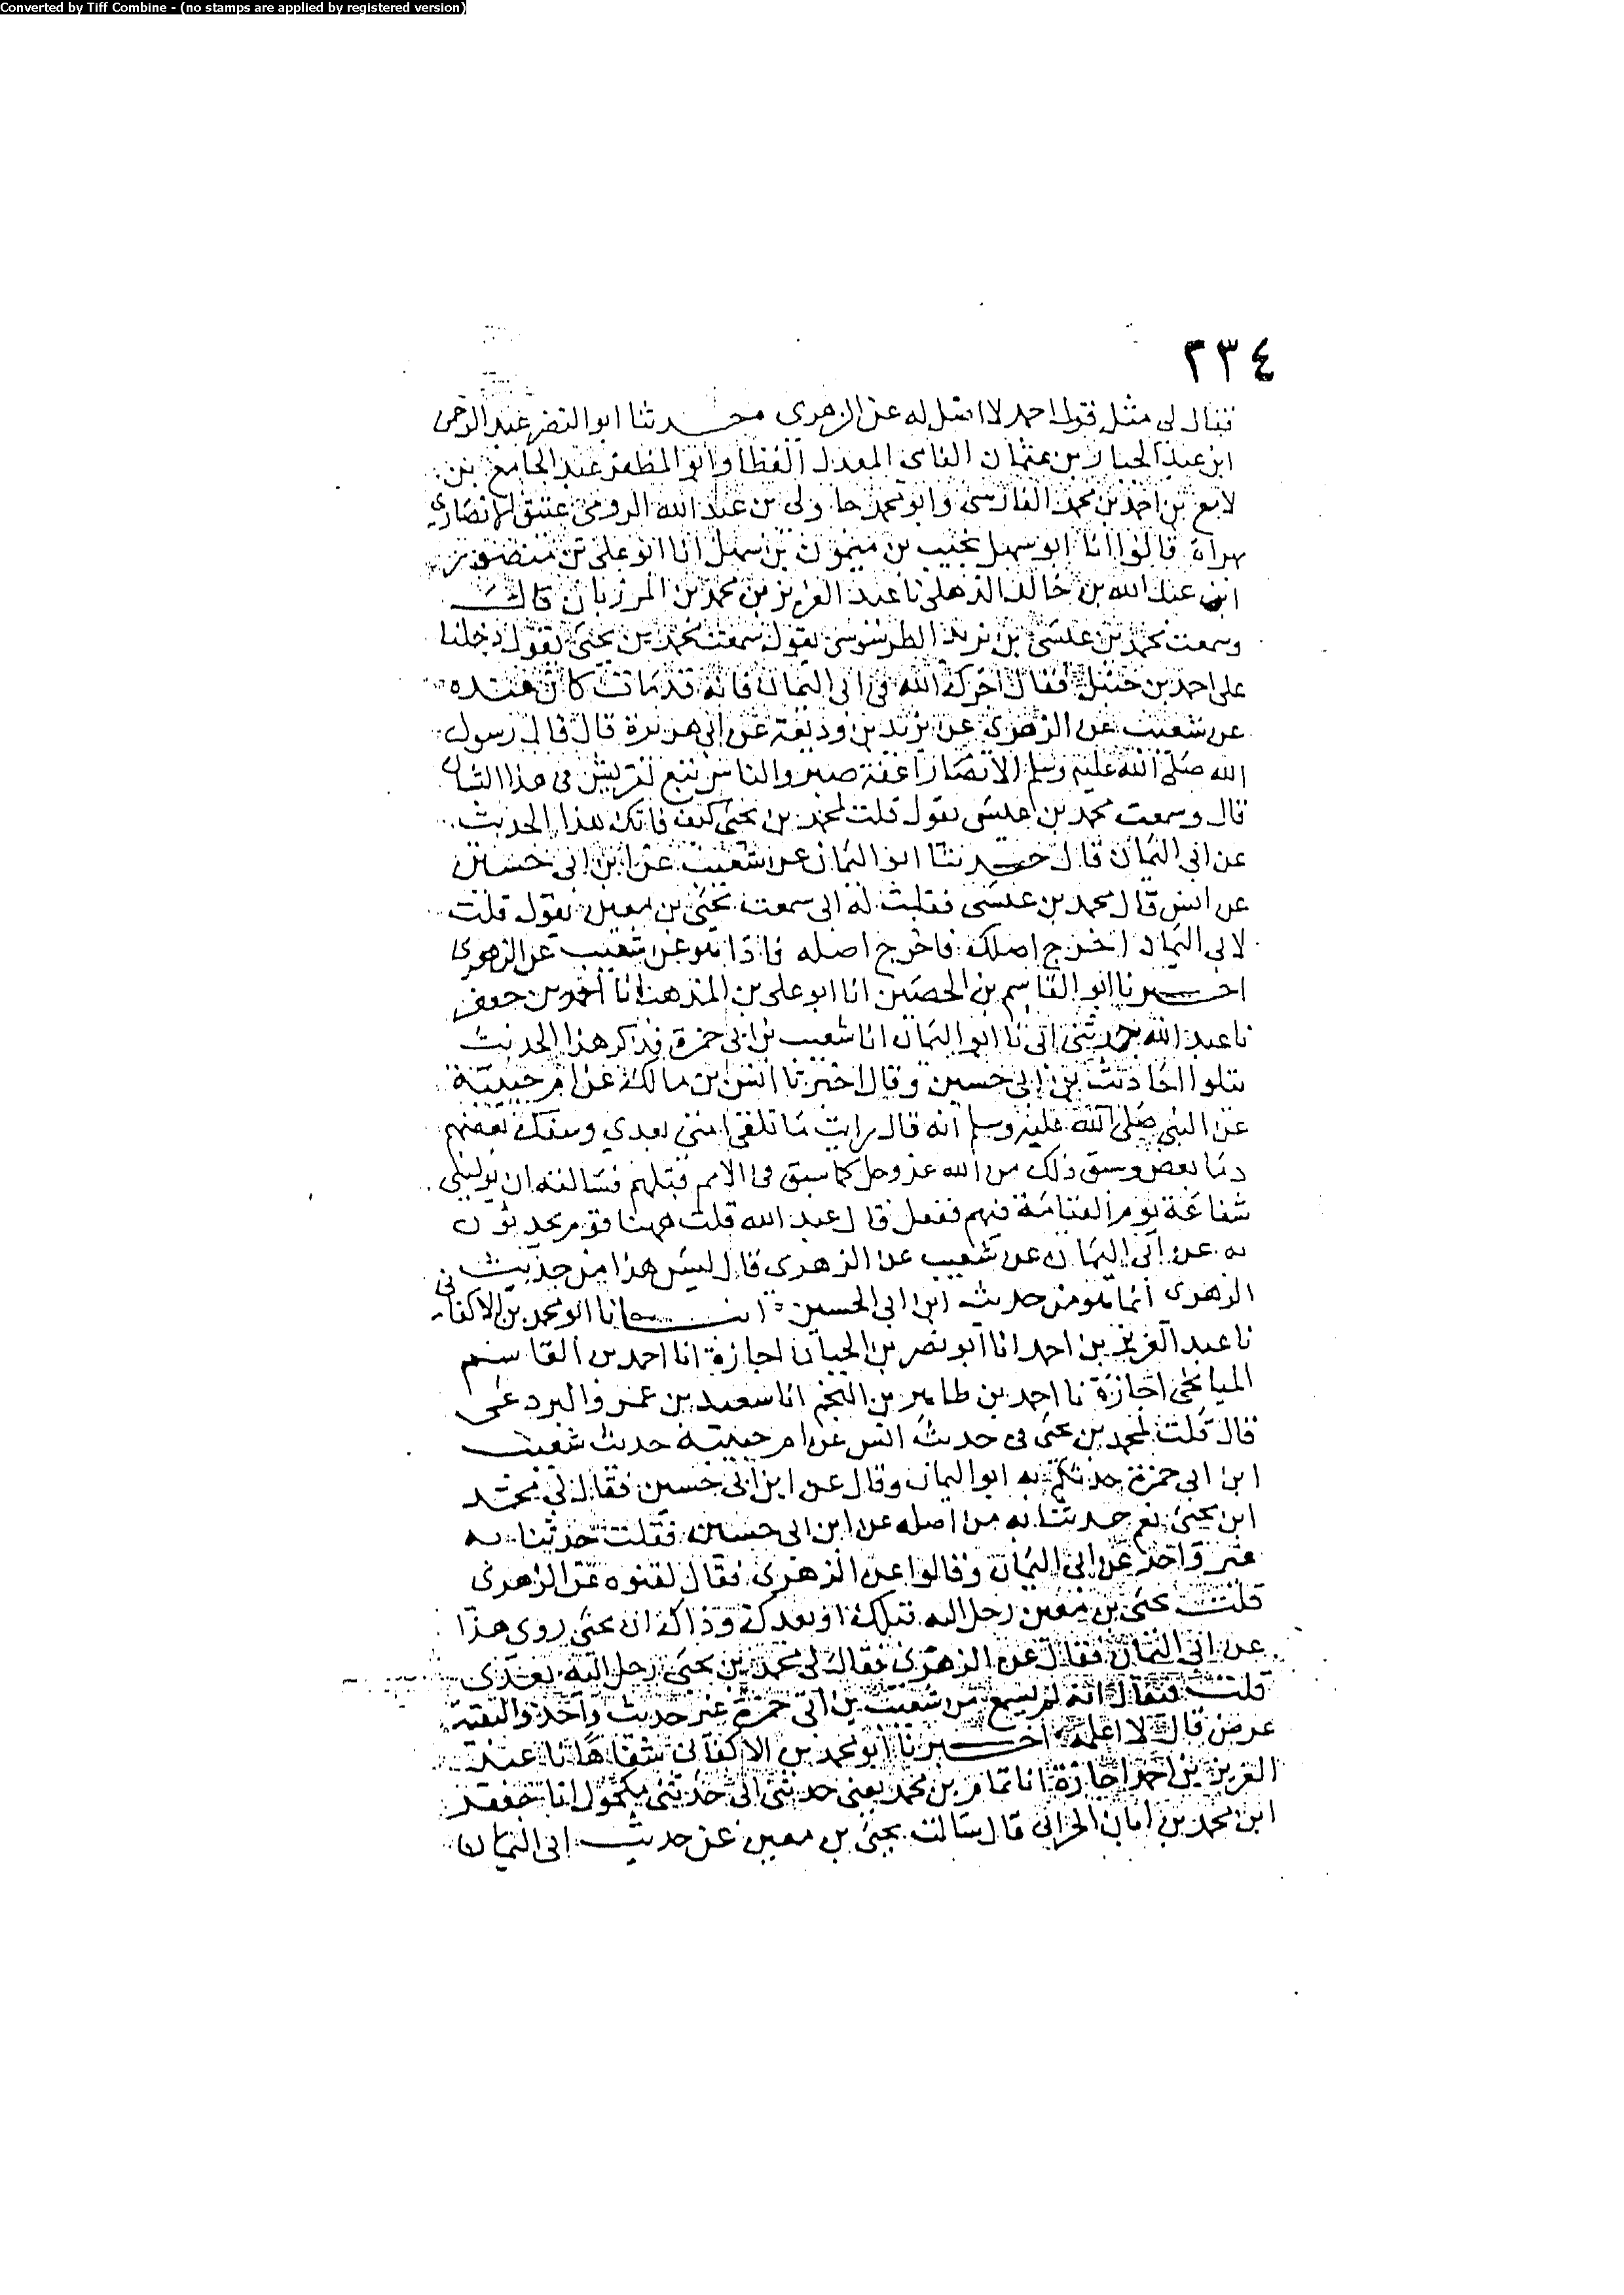 Converted by Tiff Combine - (no stamps are applied by registered version)
٢٣٤
فقال لي مثل قول احمد لا اصل له عن الزهري حدثنا ابو النضر عبد الرحمن
ابن عبد الجبار بن عثمان الفامي المعدل لفظا وابو المظفر عبد الجامع بن
لامع بن احمد بن محمد الفارسي وابو محمد جاولي بن عبد الله الرومي عتيق الانصاري
بهراة قالوا انا ابو سهل نجيب بن ميمون بن سهل انا ابو علي بن منصور بن
ابن عبد الله بن خالد الذهلي نا عبد العزيز بن محمد بن المرزبان قال
وسمعت محمد بن عيسى بن يزيد الطرسوسي يقول سمعت محمد بن يحيى يقول دخلنا
على احمد بن حنبل فقال اجركم الله في ابي اليمان فانه قد مات كان عنده
عن شعيب عن الزهري عن يزيد بن وديعة عن ابي هريرة قال قال رسول
الله صلى الله عليه وسلم الانصار اعفة صبر والناس تبع لقريش في هذا الشان
قال وسمعت محمد بن عيسى يقول قلت لمحمد بن يحيى كيف فاتك هذا الحديث
عن ابي اليمان قال حدثنا ابو اليمان عن شعيب عن ابن ابي حسين
عن انس قال محمد بن عيسى فقلت له اني سمعت يحيى بن معين يقول قلت
لابي اليمان اخرج اصلك فاخرج اصله فاذا هو عن شعيب عن الزهري
اخبرنا ابو القاسم بن الحصين انا ابو علي بن المذهب انا احمد بن جعفر
نا عبد الله حدثني ابي نا ابو اليمان انا شعيب بن ابي حمزة فذكر هذا الحديث
يتلوا احاديث بن ابي حسين وقال اخبرنا انس بن مالك عن ام حبيبة
عن النبي صلى الله عليه وسلم انه قال رايت ما تلقى امتي بعدي وسفك بعضهم
دما بعض وسبق ذلك من الله عز وجل كما سبق في الامم قبلهم فسالته ان يوليني
شفاعة يوم القيامة فيهم ففعل قال عبد الله قلت ههنا قوم يحدثون
به عن ابي اليمان عن شعيب عن الزهري قال ليس هذا من حديث
الزهري انما هو من حديث ابن ابي الحسين انبانا ابو محمد بن الاكفاني
نا عبد العزيز بن احمد انا ابو نصر بن الجبان اجازة انا احمد بن القاسم
الميانجي اجازة نا احمد بن طاهر بن النجم انا سعيد بن عمرو البردعي
قال قلت لمحمد بن يحيى في حديث انس عن ام حبيبة حديث شعيب
ابن ابي حمزة حدثكم به ابو اليمان وقال عن ابن ابي حسين فقال لي محمد
ابن يحيى نعم حدثنا به من اصله عن ابن ابي حسين فقلت حدثنا به
غير واحد عن ابي اليمان وقالوا عن الزهري فقال لقنوه عن الزهري
قلت يحيى بن معين رحل اليه قبلك او بعدك وذاك ان يحيى روى هذا
عن ابي اليمان فقال عن الزهري فقال لي محمد بن يحيى رحل اليه بعدي
قلت فيقال انه لم يسمع من شعيب بن ابي حمزة غير حديث واحد والبقية
عرض قال لا اعلمه اخبرنا ابو محمد بن الاكفاني شفاها نا عبد
العزيز بن احمد اجازة انا تمام بن محمد يعني حدثني ابي حدثني مكحول انا جعفر
ابن محمد بن ابان الحراني قال سالت يحيى بن معين عن حديث ابي اليمان